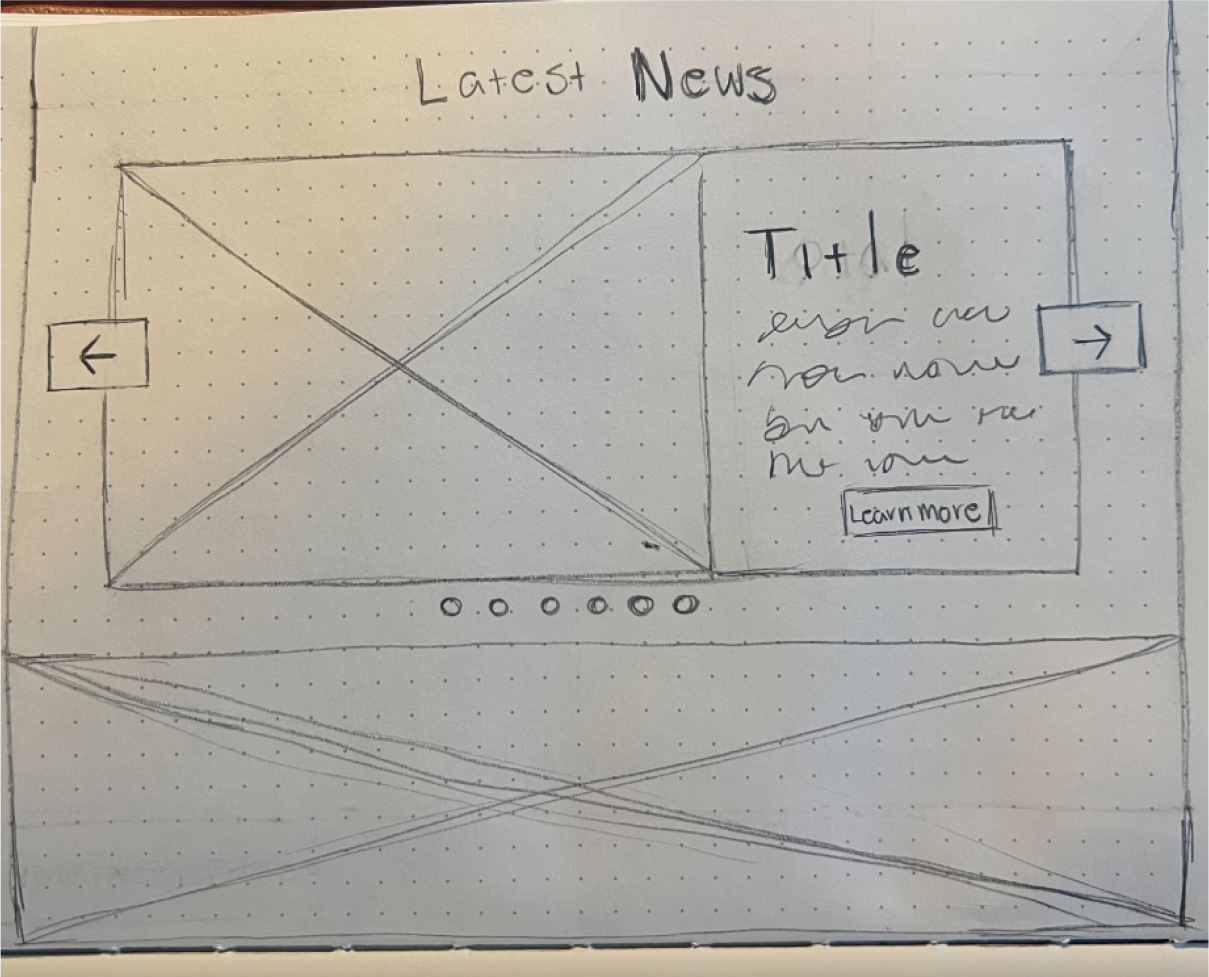 Latest News
Title
←
→
Learn more